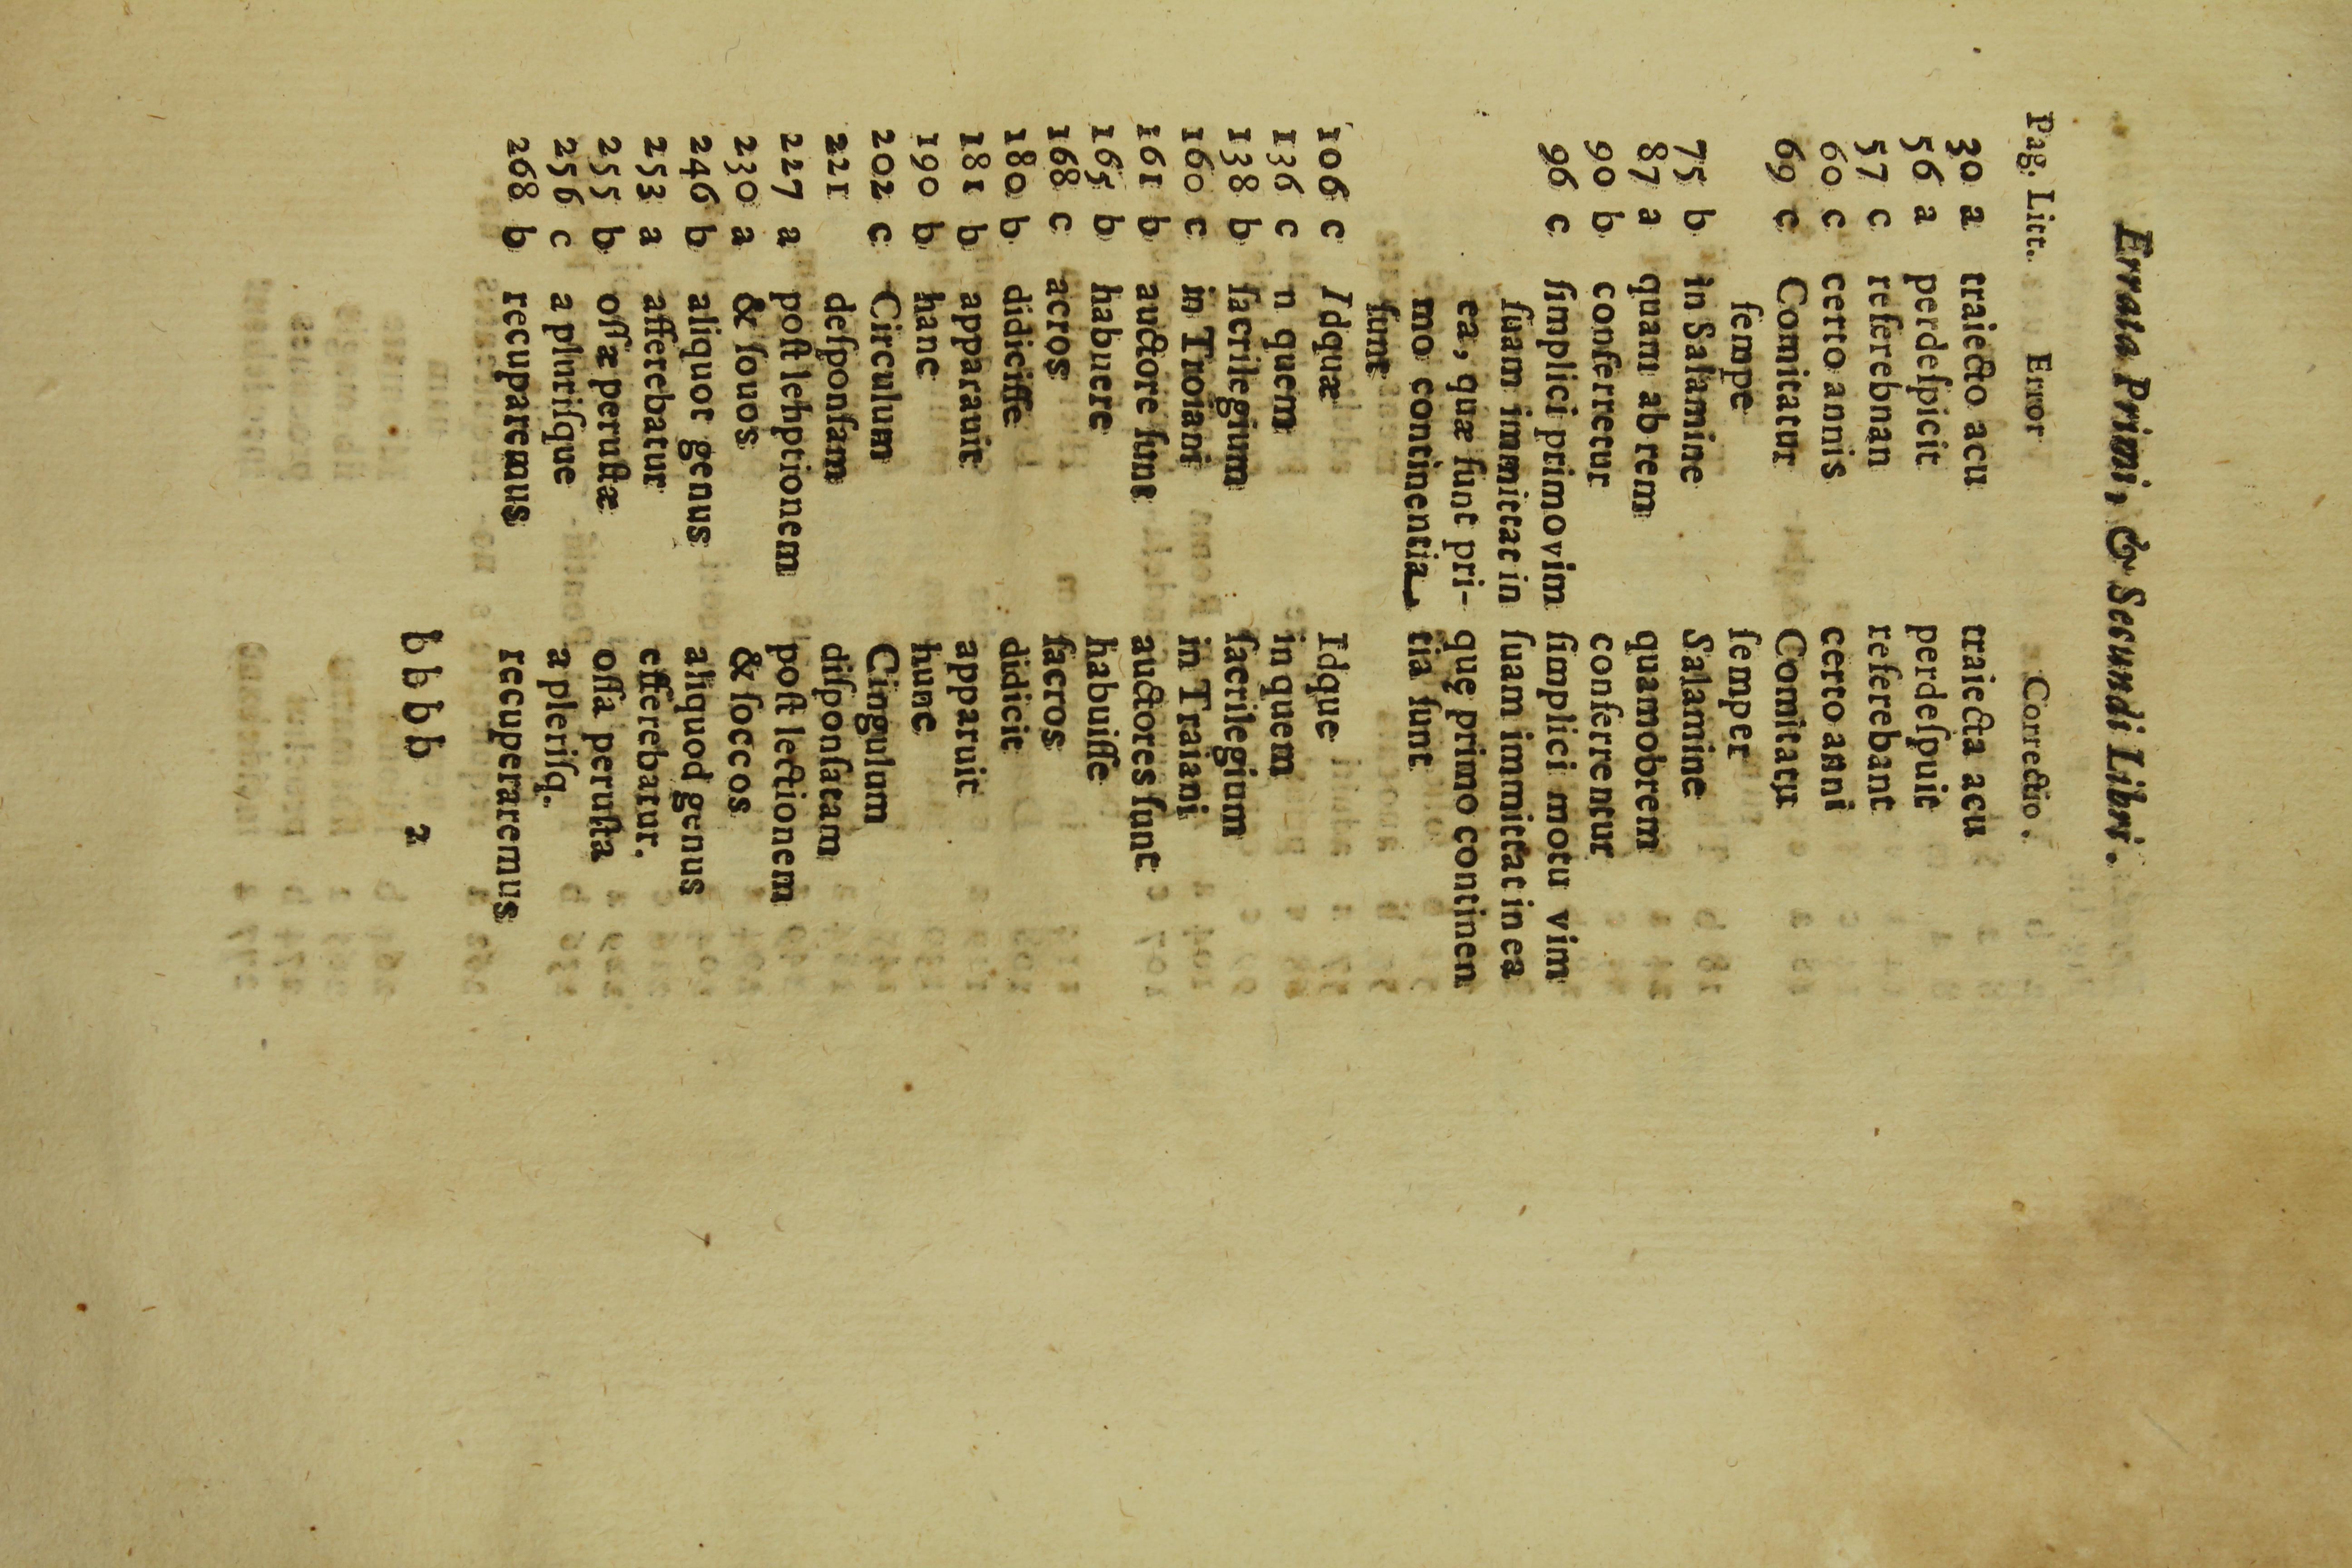 Errata Primi, & Secundi Libri.
Pag. Litt. Error Correctio.
30 a traiecto acu traiecta acu
56 a perdeſpicit perdeſpuit
57 c referebnan referebant
60 c certo annis certo anni
69 c Comitatur Comitatu
ſempe ſemper
75 b in Salamine Salamine
87 a quam ab rem quamobrem
90 b conferretur conferrentur
96 c ſimplici primovim ſimplici motu vim
ſuam immittat in ſuam immittat in ea
ea, quæ ſunt pri- quę primo continen
mo continentia tia ſunt
ſunt
106 c Idquæ Idque
136 c n quem in quem
138 b ſacrilegium ſacrilegium
160 c in Troiani in Traiani
161 b auctore ſunt auctores ſunt
165 b habuere habuiſſe
168 c acros ſacros
180 b didiciſſe didicit
181 b apparauit apparuit
190 b hanc hunc
202 c Circulum Cingulum
221 deſponſam diſponſatam
227 a poſt lehptionem poſt lectionem
230 a & ſouos & ſoccos
246 b aliquot genus aliquod genus
253 a afferebatur efferebatur.
255 b oſſæ peruſtæ oſſa peruſta
256 c a plutiſque a pleriſq.
268 b recuparemus recuperaremus
bbbb 2